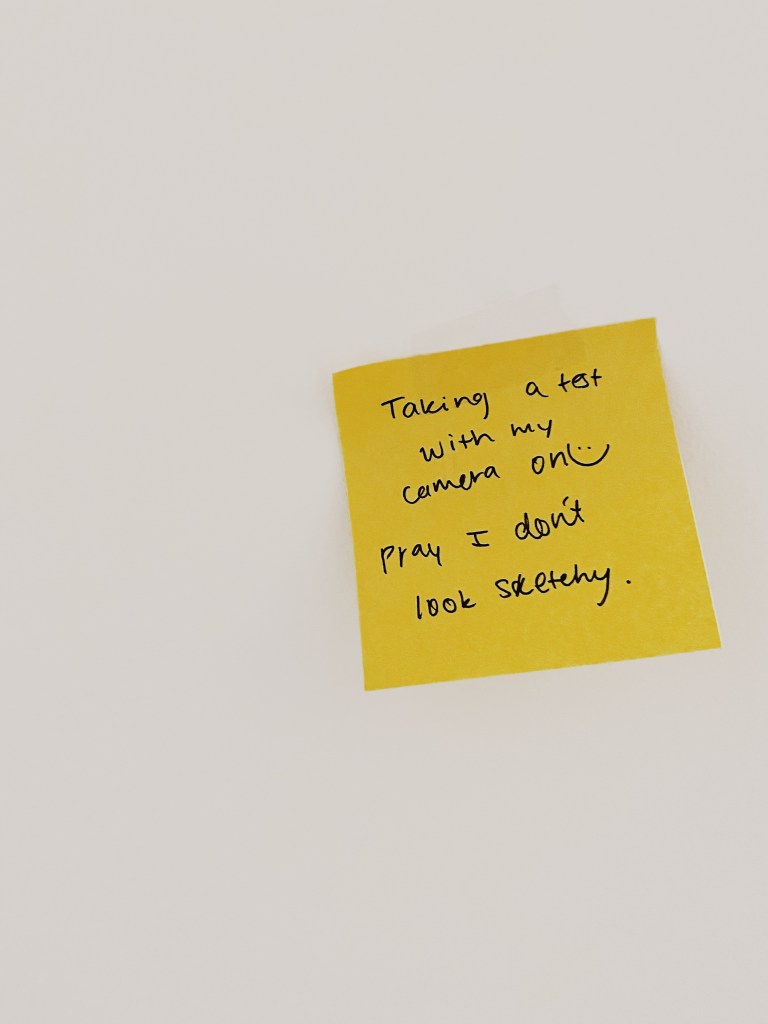 Taking a test
with my
camera on :)
Pray I don't
look sketchy.